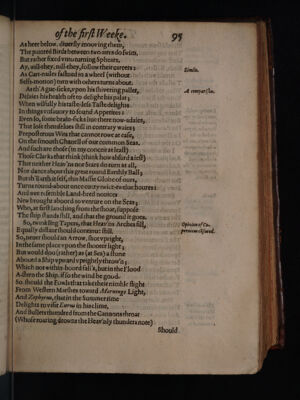 of the first Weeke. 95
As heer below, diversly mooving them,
The painted Birds between two aires do swim,
But rather fixed unto turning Sphears,
Ay, will-they, nill-they, follow their careers:
As Cart-nailes fastned in a wheel (without
Selfs-motion) turn with others turns about.
Simile.
As th'Ague-sick, upon his shivering pallet,
A comparison.
Delaies his health oft to delight his palat;
When wilfully his taste-less Taste delights
In things unsavory to sound Appetites:
Even so, some brain-sicks live there now-adaies,
That lose themselves still in contrary waies;
Preposterous Wits that cannot rowe at ease,
On the smooth Chanell of our common Seas.
And such are those (in my conceit at least)
Those Clarks that think (think how absurd a iest)
That neither Heav'ns nor Stars do turn at all,
Nor dance about this great round Earthly Ball;
But th'Earth it self, this Massie Globe of ours,
Turns round-about once every twice-twelue houres:
And we resemble Land-bred novices
New brought aboord to venture on the Seas;
Who, at first lanching from the shoar, suppose
The ship stands still, and that the ground it goes.
So, twinkling Tapers, that Heav'ns Arches fill,
Opinion of Co-
pernicus
Equally distant should continue still.
So, never should an Arrow, shot upright,
In the same place upon the shooter light;
But would doo (rather) as (at Sea) a stone
Aboord a Ship upward uprightly throw'n;
Which not within-boord fals, but in the Flood
A-stern the Ship, if so the winde be good.
So, should the Fowls that take their nimble flight
From Western Marshes toward Mornings Light,
And Zephyrus, that in the Summer time
Delights to visit Eurus in his clime,
And Bullets thundred from the Cannons throat
(Whose roaring drowns the Heav'nly thunders note)
Should